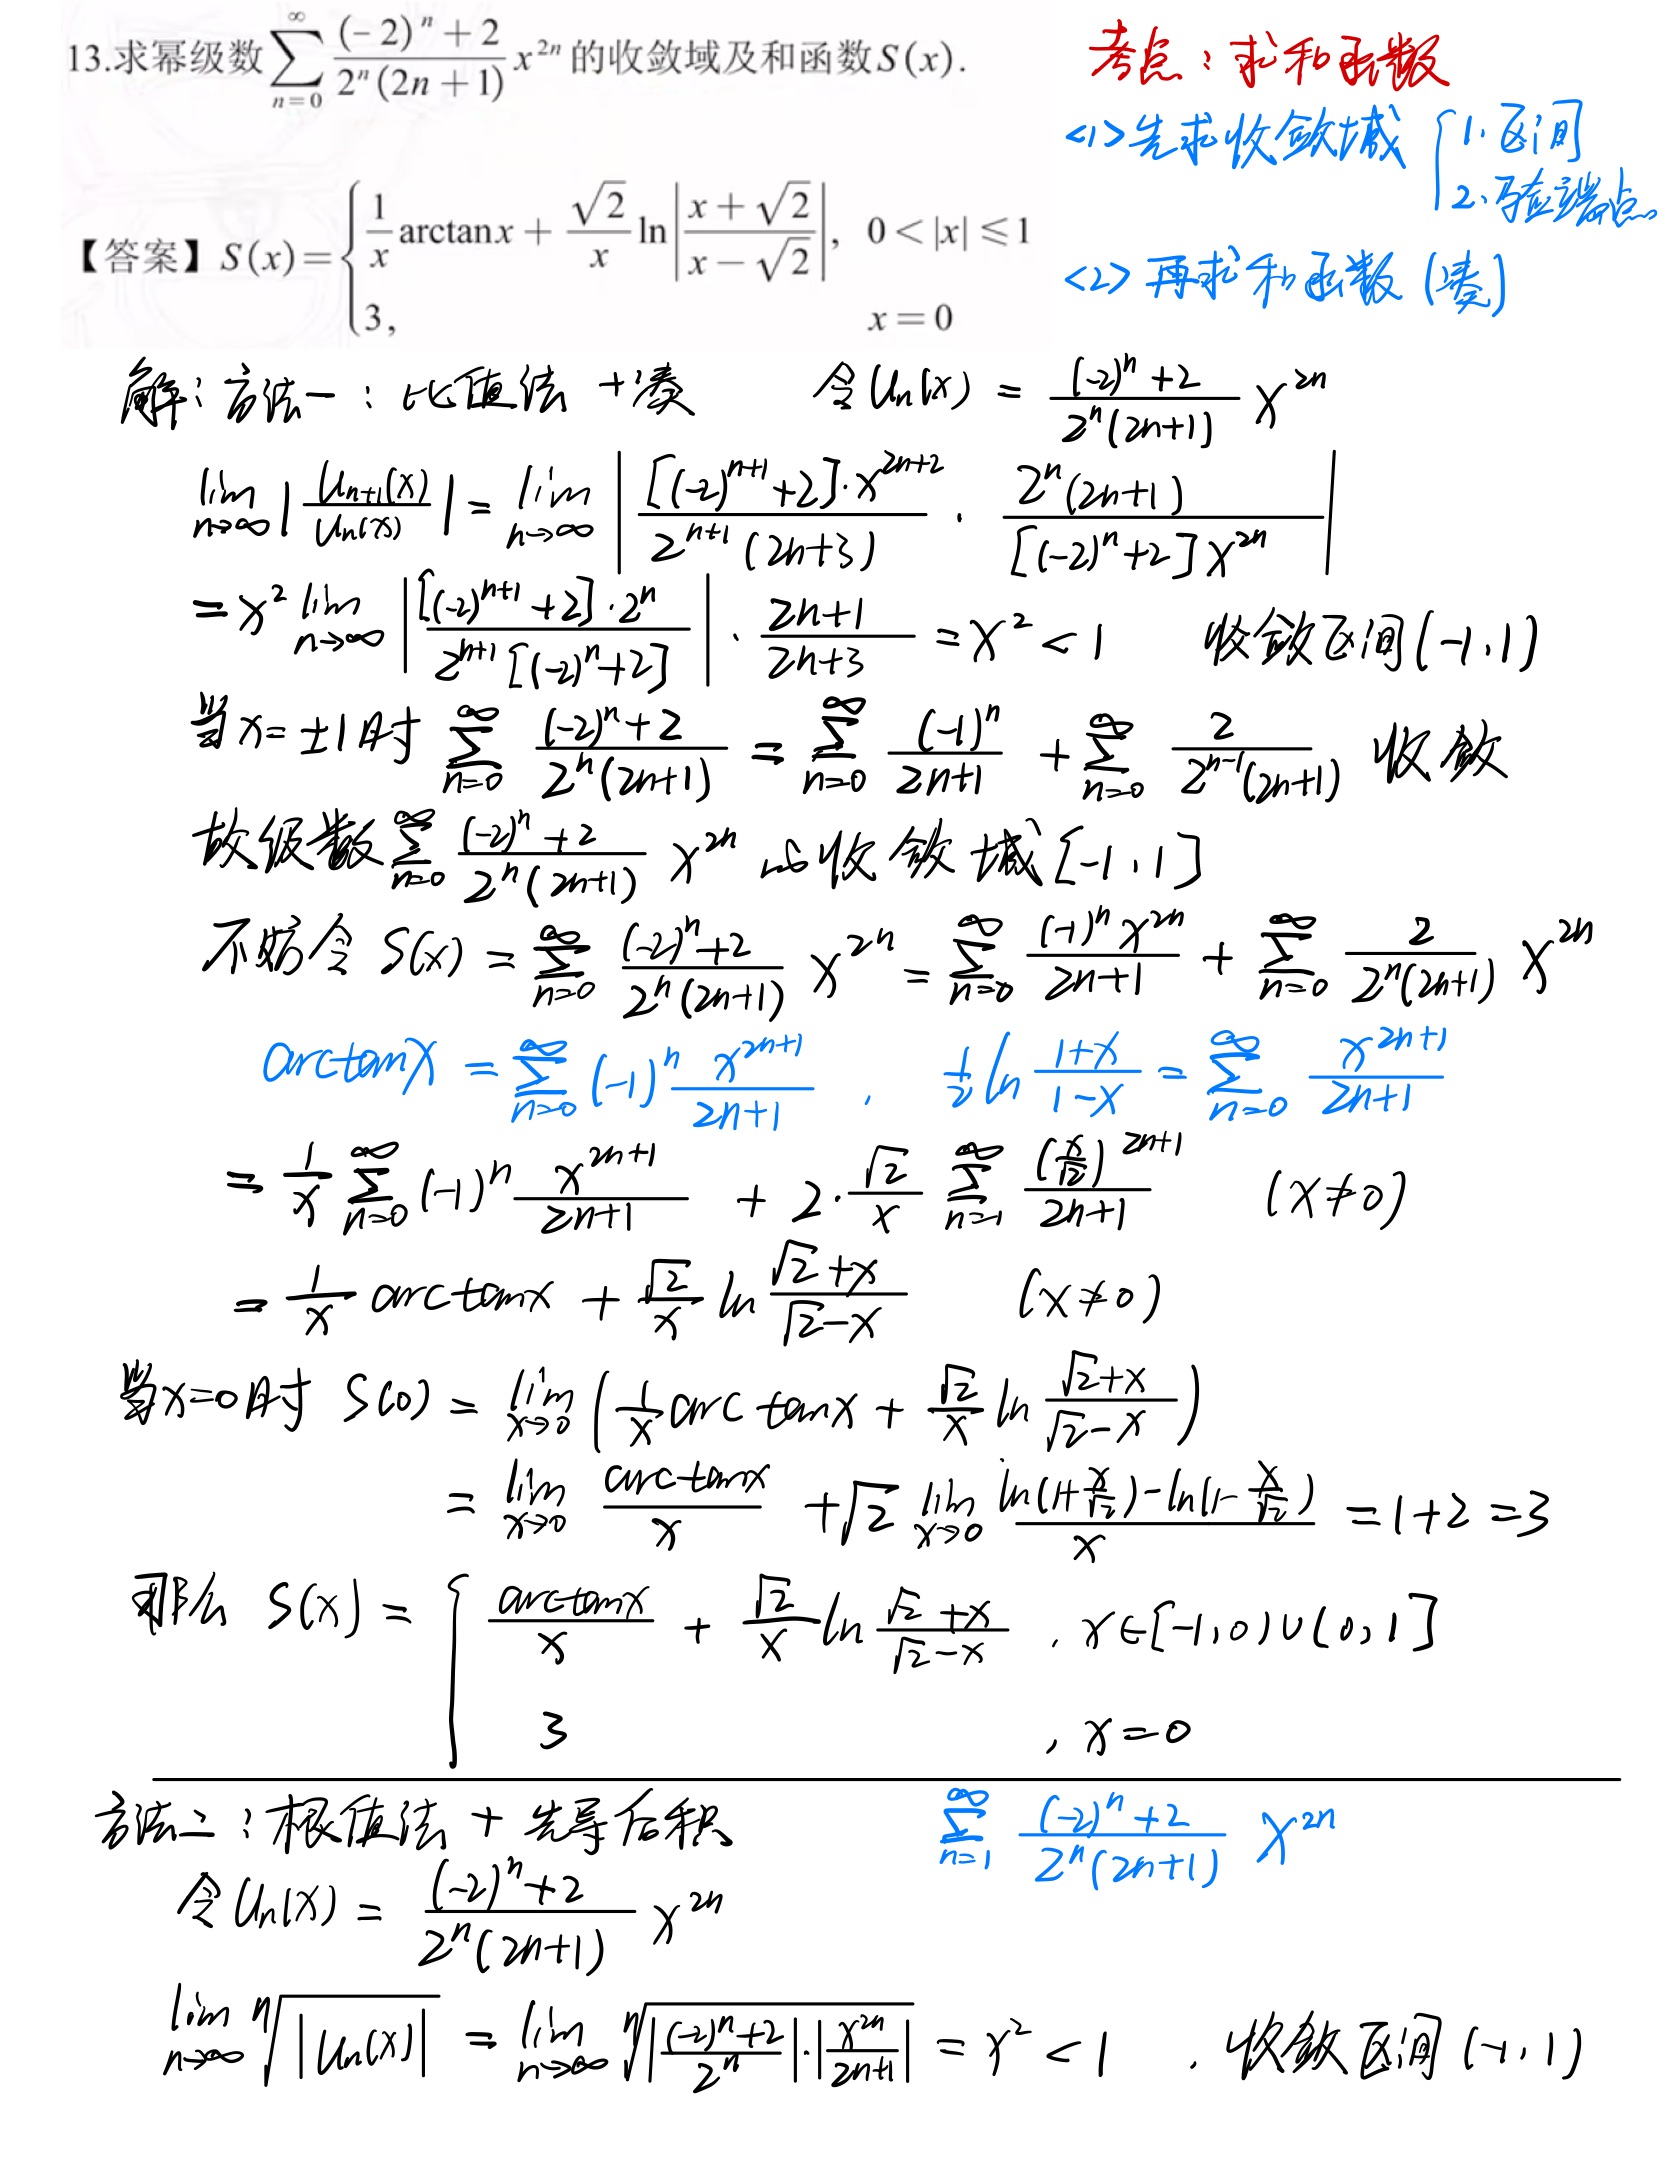 13.求幂级数 $\sum_{n=0}^{\infty}\frac{(-2)^n+2}{2^n(2n+1)}x^{2n}$ 的收敛域及和函数S(x).
考点：求和函数
<1>先求收敛域 { 1.区间
2.验证端点。
【答案】 $S(x)=\begin{cases}\frac{1}{x}\arctan x+\frac{\sqrt{2}}{x}\ln\left|\frac{x+\sqrt{2}}{x-\sqrt{2}}\right|, & 0<|x|\leqslant 1\\ 3, & x=0\end{cases}$
<2>再求和函数 (凑)
解：方法一：比值法 +凑 令 $U_n(x)=\frac{(-2)^n+2}{2^n(2n+1)}x^{2n}$
$\lim_{n\to\infty}\left|\frac{U_{n+1}(x)}{U_n(x)}\right|=\lim_{n\to\infty}\left|\frac{[(-2)^{n+1}+2]\cdot x^{2n+2}}{2^{n+1}(2n+3)}\cdot\frac{2^n(2n+1)}{[(-2)^n+2]x^{2n}}\right|$
$=x^2\lim_{n\to\infty}\left|\frac{[(-2)^{n+1}+2]\cdot 2^n}{2^{n+1}[(-2)^n+2]}\right|\cdot\frac{2n+1}{2n+3}=x^2<1$ 收敛区间(-1,1)
当x=±1时 $\sum_{n=0}^{\infty}\frac{(-2)^n+2}{2^n(2n+1)}=\sum_{n=0}^{\infty}\frac{(-1)^n}{2n+1}+\sum_{n=0}^{\infty}\frac{2}{2^{n-1}(2n+1)}$, 收敛
故级数 $\sum_{n=0}^{\infty}\frac{(-2)^n+2}{2^n(2n+1)}x^{2n}$ 的收敛域[-1,1]
不妨令 $S(x)=\sum_{n=0}^{\infty}\frac{(-2)^n+2}{2^n(2n+1)}x^{2n}=\sum_{n=0}^{\infty}\frac{(-1)^n x^{2n}}{2n+1}+\sum_{n=0}^{\infty}\frac{2}{2^n(2n+1)}x^{2n}$
$\arctan x=\sum_{n=0}^{\infty}(-1)^n\frac{x^{2n+1}}{2n+1}$ , $\frac{1}{2}\ln\frac{1+x}{1-x}=\sum_{n=0}^{\infty}\frac{x^{2n+1}}{2n+1}$
$=\frac{1}{x}\sum_{n=0}^{\infty}(-1)^n\frac{x^{2n+1}}{2n+1}+2\cdot\frac{\sqrt{2}}{x}\sum_{n=1}^{\infty}\frac{(\frac{x}{\sqrt{2}})^{2n+1}}{2n+1}$ (x≠0)
$=\frac{1}{x}\arctan x+\frac{\sqrt{2}}{x}\ln\frac{\sqrt{2}+x}{\sqrt{2}-x}$ (x≠0)
当x=0时 $S(0)=\lim_{x\to 0}\left(\frac{1}{x}\arctan x+\frac{\sqrt{2}}{x}\ln\frac{\sqrt{2}+x}{\sqrt{2}-x}\right)$
$=\lim_{x\to 0}\frac{\arctan x}{x}+\sqrt{2}\lim_{x\to 0}\frac{\ln(1+\frac{x}{\sqrt{2}})-\ln(1-\frac{x}{\sqrt{2}})}{x}=1+2=3$
那么 $S(x)=\begin{cases}\frac{\arctan x}{x}+\frac{\sqrt{2}}{x}\ln\frac{\sqrt{2}+x}{\sqrt{2}-x}, & x\in[-1,0)\cup(0,1]\\ 3, & x=0\end{cases}$
方法二：根值法 + 先导后积 $\sum_{n=1}^{\infty}\frac{(-2)^n+2}{2^n(2n+1)}x^{2n}$
令 $U_n(x)=\frac{(-2)^n+2}{2^n(2n+1)}x^{2n}$
$\lim_{n\to\infty}\sqrt[n]{|U_n(x)|}=\lim_{n\to\infty}\sqrt[n]{\left|\frac{(-2)^n+2}{2^n}\right|\cdot\left|\frac{x^{2n}}{2n+1}\right|}=x^2<1$ , 收敛区间(-1,1)